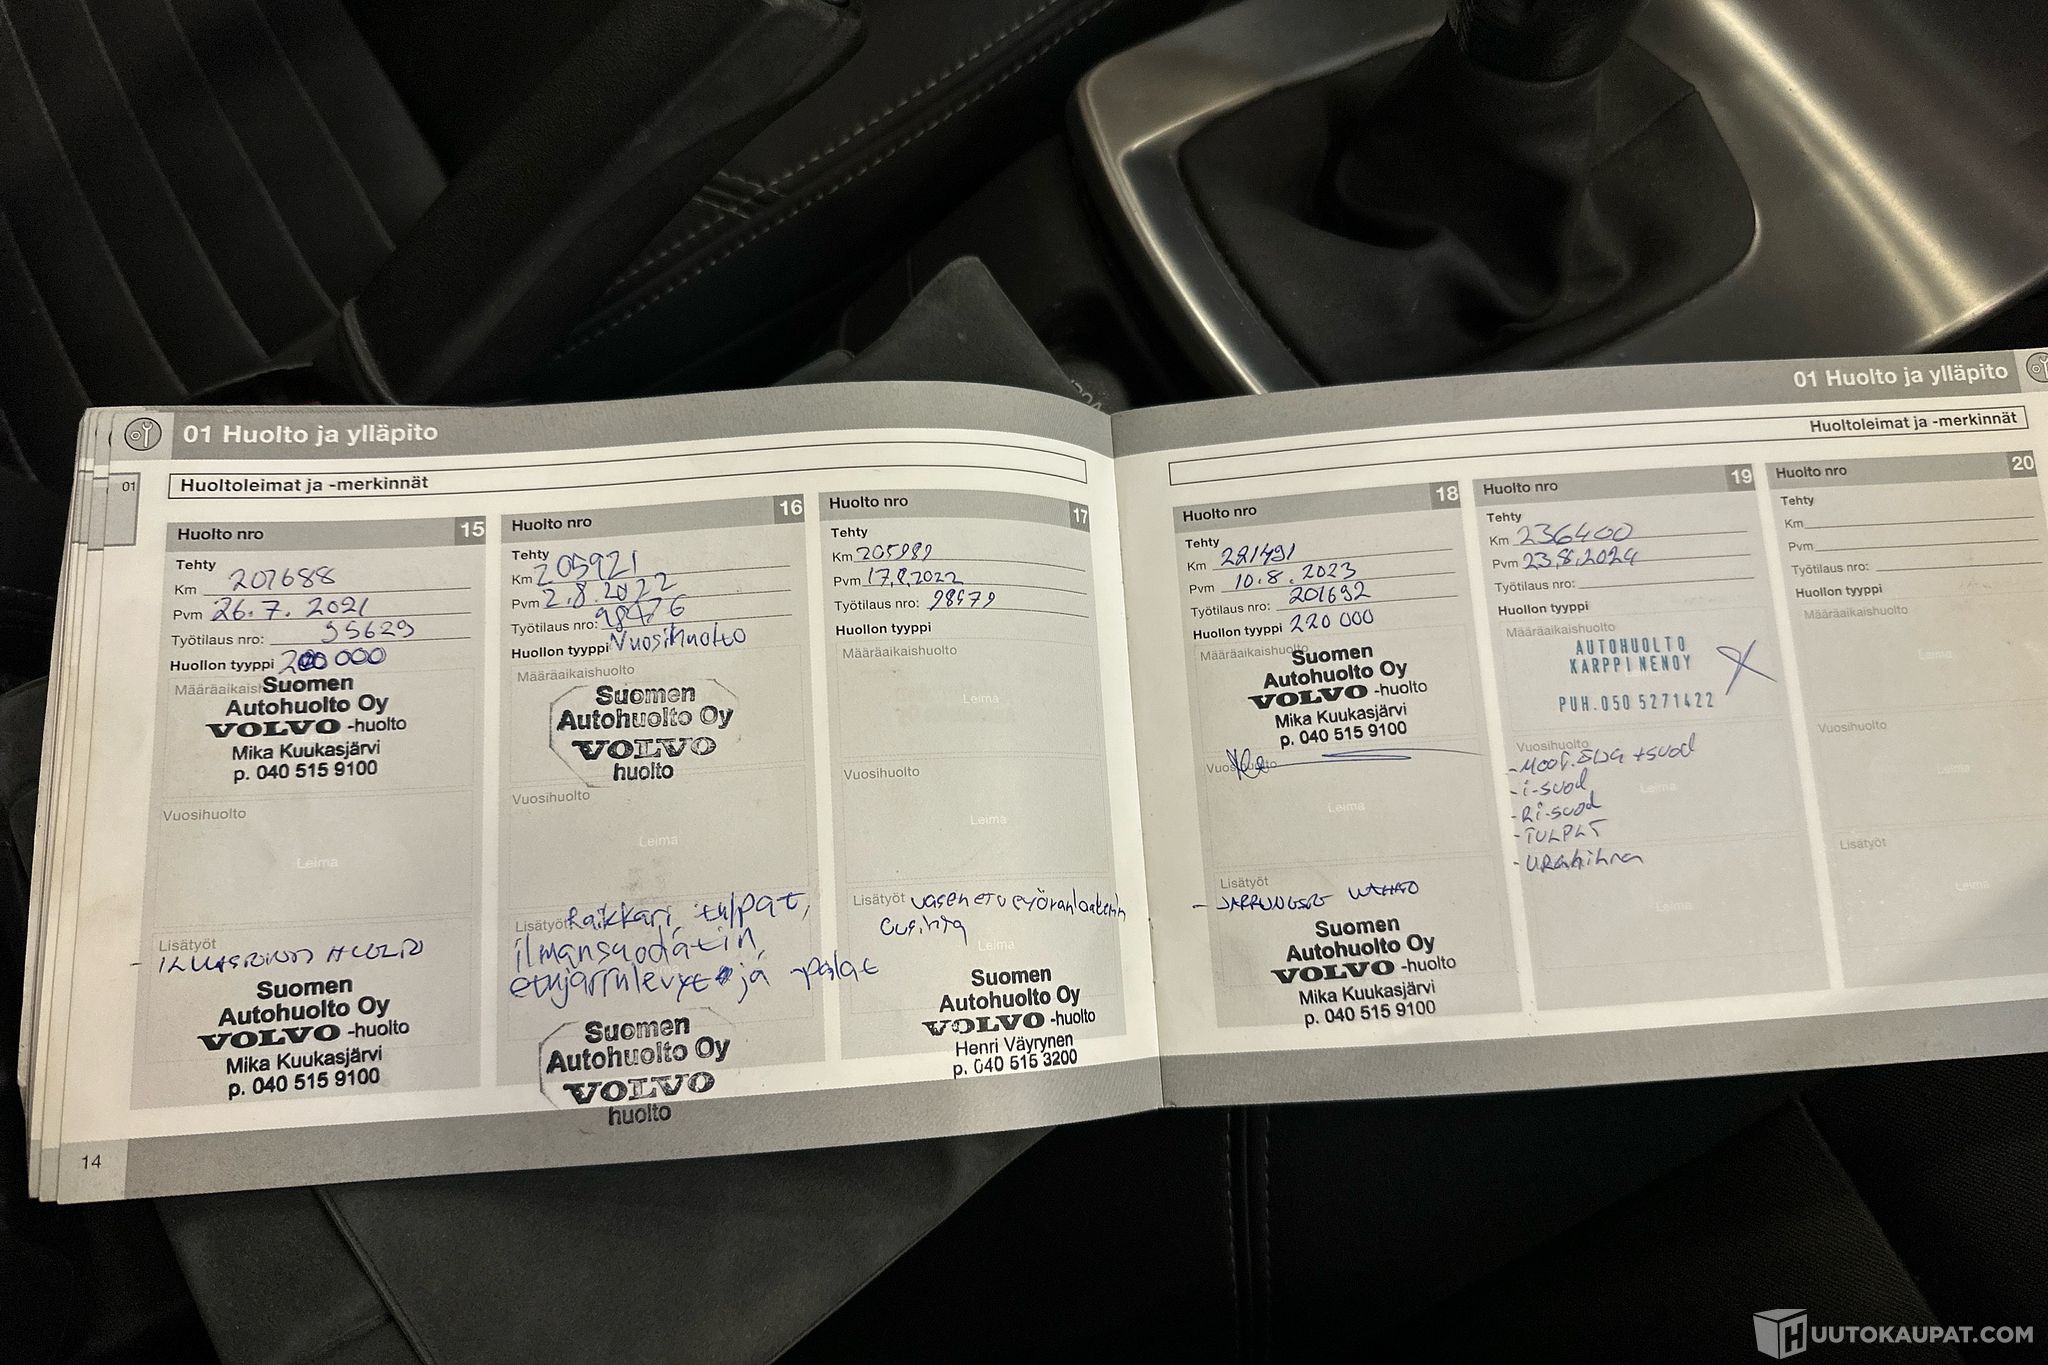 01 Huolto ja ylläpito
01
Huoltoleimat ja -merkinnät
Huolto nro 15
Tehty
Km 201688
Pvm 26.7. 2021
Työtilaus nro: 95629
Huollon tyyppi 200 000
Määräaikaishuolto
Suomen
Autohuolto Oy
VOLVO -huolto
Mika Kuukasjärvi
p. 040 515 9100
Vuosihuolto
Leima
Lisätyöt
Suomen
Autohuolto Oy
VOLVO -huolto
Mika Kuukasjärvi
p. 040 515 9100
14
Huolto nro 16
Tehty
Km 205921
Pvm 2.8.2022
Työtilaus nro: 98476
Huollon tyyppi Vuosihuolto
Määräaikaishuolto
Suomen
Autohuolto Oy
VOLVO
huolto
Vuosihuolto
Leima
Lisätyöt Raikkari, tulpat,
ilmansuodatin,
etujarrulevyt ja -palat
Suomen
Autohuolto Oy
VOLVO
huolto
Huolto nro 17
Tehty
Km 205989
Pvm 17.8.2022
Työtilaus nro: 98579
Huollon tyyppi
Määräaikaishuolto
Leima
Vuosihuolto
Leima
Lisätyöt vasen etupyöränlaakerin
uusinta
Leima
Suomen
Autohuolto Oy
VOLVO -huolto
Henri Väyrynen
p. 040 515 3200
01 Huolto ja ylläpito
Huoltoleimat ja -merkinnät
Huolto nro 18
Tehty
Km 221491
Pvm 10.8.2023
Työtilaus nro: 201692
Huollon tyyppi 220 000
Määräaikaishuolto
Suomen
Autohuolto Oy
VOLVO -huolto
Mika Kuukasjärvi
p. 040 515 9100
Vuosihuolto
Leima
Lisätyöt
- JARRUNESTE VAIHTO
Suomen
Autohuolto Oy
VOLVO -huolto
Mika Kuukasjärvi
p. 040 515 9100
Huolto nro 19
Tehty
Km 236400
Pvm 23.8.2024
Työtilaus nro:
Huollon tyyppi
Määräaikaishuolto
AUTOHUOLTO
KARPPINEN OY
PUH. 050 5271422
Vuosihuolto
- Moot. öljy + suod
- i-suod
- Ri-suod
- TULPAT
- URAhihna
Leima
Leima
Huolto nro 20
Tehty
Km
Pvm
Työtilaus nro:
Huollon tyyppi
Määräaikaishuolto
Leima
Vuosihuolto
Leima
Lisätyöt
Leima
HUUTOKAUPAT.COM